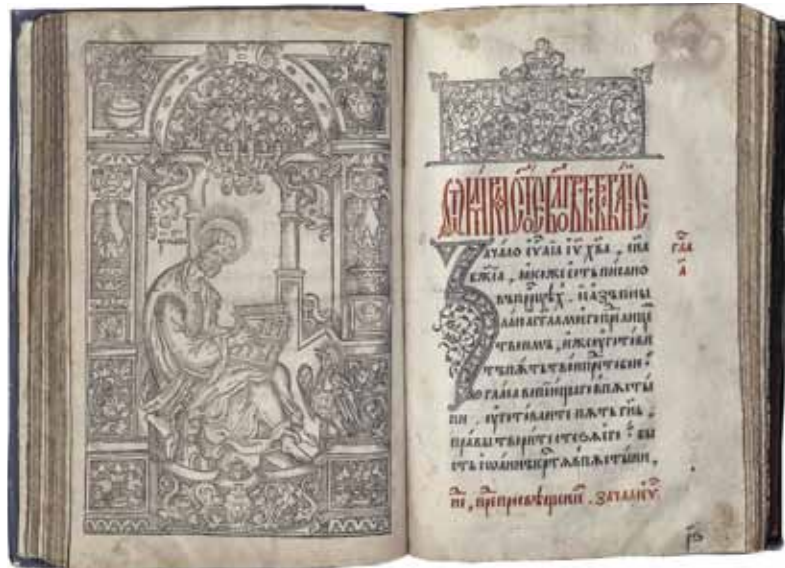 Зачало еѵⷢ҇лїа іѵ҃ хв҃а, сн҃а
гла
бж҃їа, ꙗкоже есть писано
а҃
въ прⷪ҇рцѣхъ. се азъ посы
лаю аг҃гла моего прⷣе лицеⷨ
твоимъ, иже оуготови
тъ пѫть твои прⷣе тобою ·
гласъ вопиющаго в пѫсты
ни, оуготоваите пѫть гн҃ь,
правы творите стезѧ его · бы
сть іѡаннъ крⷭ҇тѧ в пѫстыни,
прⷣе просвѣщениеⷨ. зачало